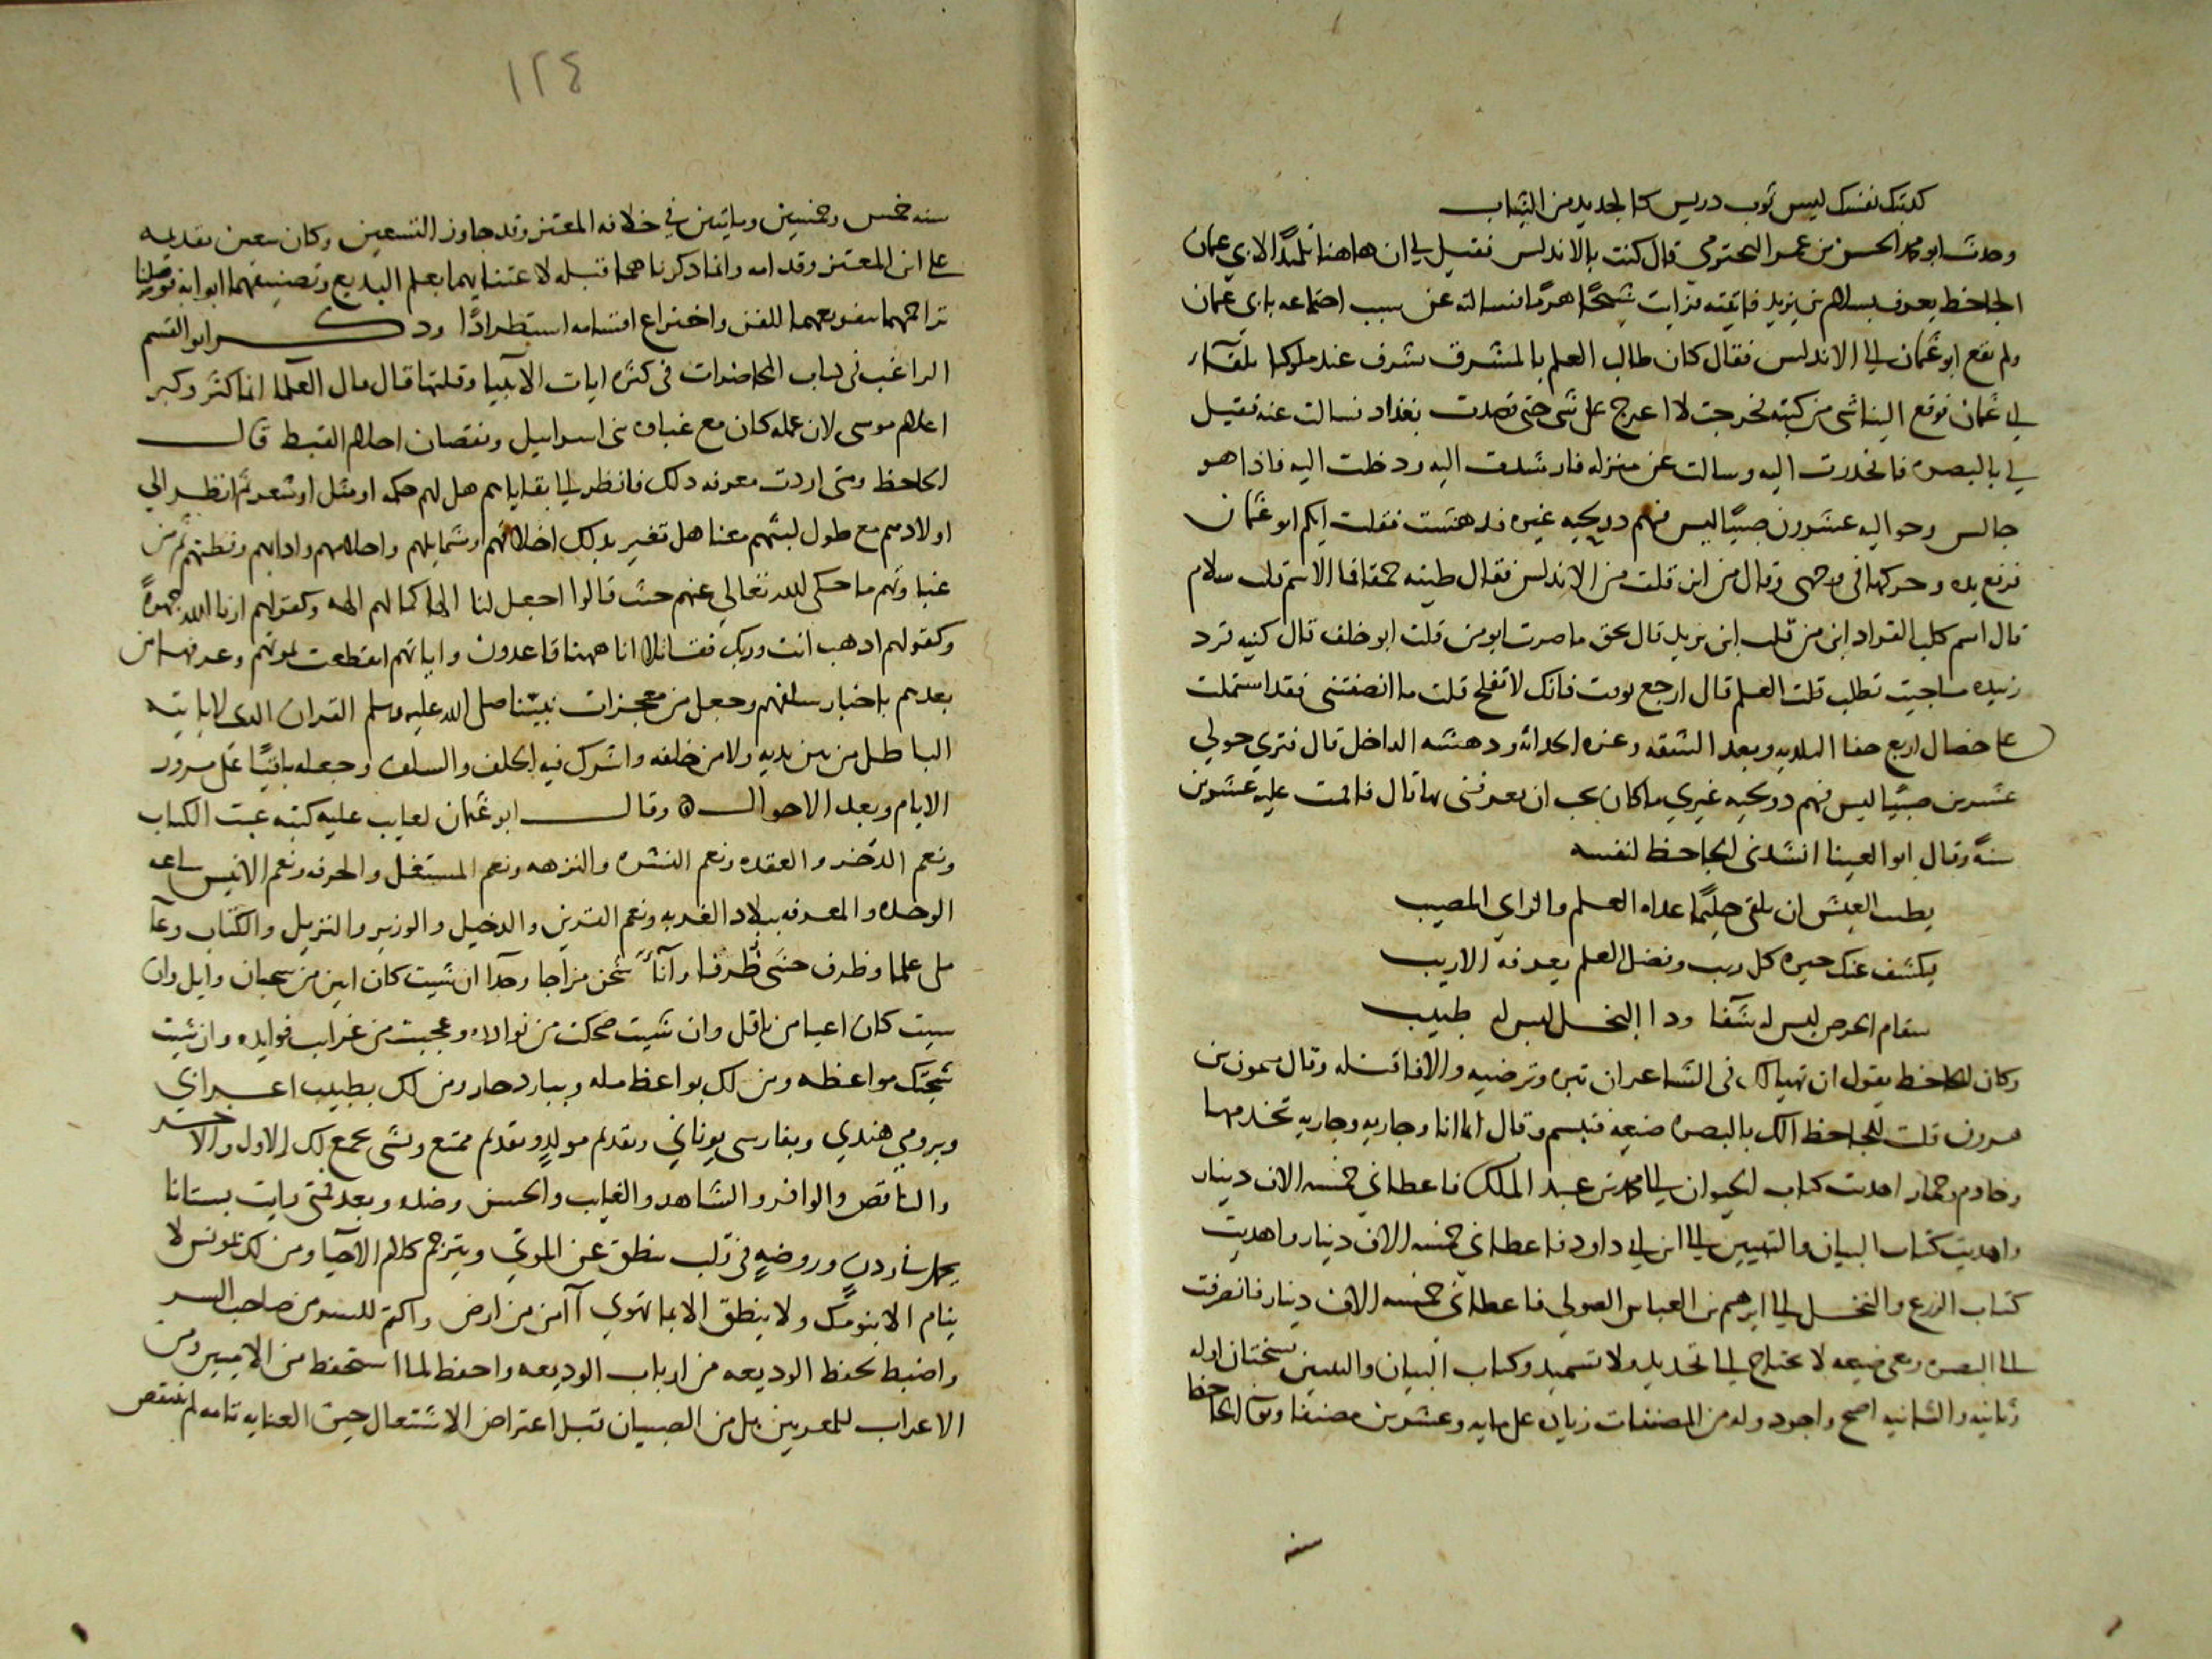 كذبتك نفسك ليس ثوب دريس كالجديد من الثياب
وحدث ابو محمد الحسن بن عمرو قال كنت بالاندلس فقيل لي ان هاهنا تلميذا لابي عثمان
الجاحظ يعرف بسلام بن يزيد فاتيته فرايت شيخا هرما فسالته عن سبب اجتماعه بابي عثمان
ولم يقع ابو عثمان الي الاندلس فقال كان طالب العلم بالمشرق يشرف عند ملوكنا بلقآء
ابي عثمان فوقع الينا شي من كتبه فخرجت لا اعرج على شي حتى قصدت بغداد فسالت عنه فقيل
لي بالبصره فانحدرت اليه وسالت عن منزله فارشدت اليه ودخلت اليه فاذا هو
جالس وحواليه عشرون صبيا ليس فيهم ذو لحيه غيره فدهشت فقلت ايكم ابو عثمان
فرفع يده وحركها في وجهي وقال من اين قلت من الاندلس فقال طينه حمقا فما الاسم قلت سلام
قال اسم كلب القراد ابن من قلت ابن يزيد قال بحق ما صرت ابو من قلت ابو خلف قال كنيه قرد
زبيده ما جيت تطلب قلت العلم قال ارجع بوقت فانك لا تفلح قلت ما انصفتني فقد اشتملت
على خصال اربع جفا البلديه وبعد الشقه وغره الحداثه ودهشه الداخل قال فتري حولي
عشرين صبيا ليس فيهم ذو لحيه غيري ما كان يجب ان تعرفني بها قال فاقمت عليه عشرين
سنة وقال ابو العينا انشدني الجاحظ لنفسه
يطيب العيش ان تلقى حليما غداه العلم والراي المصيب
يكشف عنك حيره كل ريب وفضل العلم يعرفه الاريب
سقام الحرص ليس له شفا ودا البخل ليس له طبيب
وكان الجاحظ يقول ان تهيا لك في الشاعر ان تبره وترضيه والا فاقتله وقال ميمون بن
هرون قلت للجاحظ الك بالبصره ضيعه فتبسم وقال انما انا وجاريه وجاريه تخدمها
وخادم وحمار اهديت كتاب الحيوان الي محمد بن عبد الملك فاعطاني خمسه الاف دينار
واهديت كتاب البيان والتبيين الي ابن ابي داود فاعطاني خمسه الاف دينار واهديت
كتاب الزرع والنخل الي ابرهيم بن العباس الصولي فاعطاني خمسه الاف دينار فانصرفت
الي البصره ومعي ضيعه لا تحتاج الي تجديد ولا تسميد وكتاب البيان والتبيين نسختان اوله
وثانيه والثانيه اصح واجود وله من المصنفات زياده على مايه وعشرين مصنفا وتوفي الجاحظ
سنه
١٢٤
سنه خمس وخمسين ومايتين في خلافه المعتز وقد جاوز التسعين وكان يتعين تقديمه
على ابن المعتز وقدامه وانما ذكرناهما قبله لاعتنايهما بعلم البديع وتصنيفهما ابوابه فوصلنا
تراجمهما بتنويعهما للفن واختراع اقسامه استطرادا وذكر ابو القسم
الراغب في كتاب المحاضرات في كثره ايات الانبيا وقلتها قال قال العلما انما كثر وكبر
اعلام موسى لان عمله كان مع غباوه بني اسراييل ونقصان احلام القبط قال
الجاحظ ومتى اردت معرفه ذلك فانظر الي بقاياهم هل لهم حكمه او مثل او شعر ثم انظر الي
اولادهم مع طول لبثهم معنا هل تغير بذلك اخلاقهم وشمايلهم واحلامهم وادابهم وفطنهم ثم من
غباوتهم ما حكى الله تعالي عنهم حيث قالوا اجعل لنا الها كما لهم الهه وكقولهم ارنا الله جهرة
وكقولهم اذهب انت وربك فقاتلا انا ههنا قاعدون واياتهم انقطعت لموتهم وعرفها من
بعدهم باخبار سلفهم وجعل من معجزات نبينا صلى الله عليه وسلم القران الذي لا ياتيه
الباطل من بين يديه ولا من خلفه واشرك فيه الخلف والسلف وجعله باقيا على مرور
الايام وبعد الاحوال وقال ابو عثمان لعايب عليه كتبه عبت الكتاب
ونعم الذخر والعقده ونعم النشره والنزهه ونعم المستغل والحرفه ونعم الانيس ساعه
الوحده والمعرفه ببلاد الغربه ونعم القرين والدخيل والوزير والنزيل والكتاب وعآ
ملي علما وظرف حشي ظرفا وانآء شحن مزاحا وجدا ان شيت كان ابين من سحبان وايل وان
شيت كان اعيا من باقل وان شيت ضحكت من نوادره وعجبت من غرايب فوايده وان شيت
شجتك مواعظه ومن لك بواعظ مله وببارد حار ومن لك بطبيب اعرابي
وبرومي هندي وبفارسي يوناني وبقديم مولد وبقديم ممتع وبشي يجمع لك الاول والاخر
والناقص والوافر والشاهد والغايب والحسن وضده وبعد فمتى رايت بستانا
يحمل في ردن وروضه في قلب ينطق عن الموتي ويترجم كلام الاحيا ومن لك بمونس لا
ينام الا بنومك ولا ينطق الا بما تهوي آامن من ارض واكتم للسر من صاحب السر
واضبط بحفظ الوديعه من ارباب الوديعه واحفظ لما استحفظ من الاميين ومن
الاعراب المعربين بل من الصبيان قبل اعتراض الاشتغال حين العنايه تامه لم تنتقص